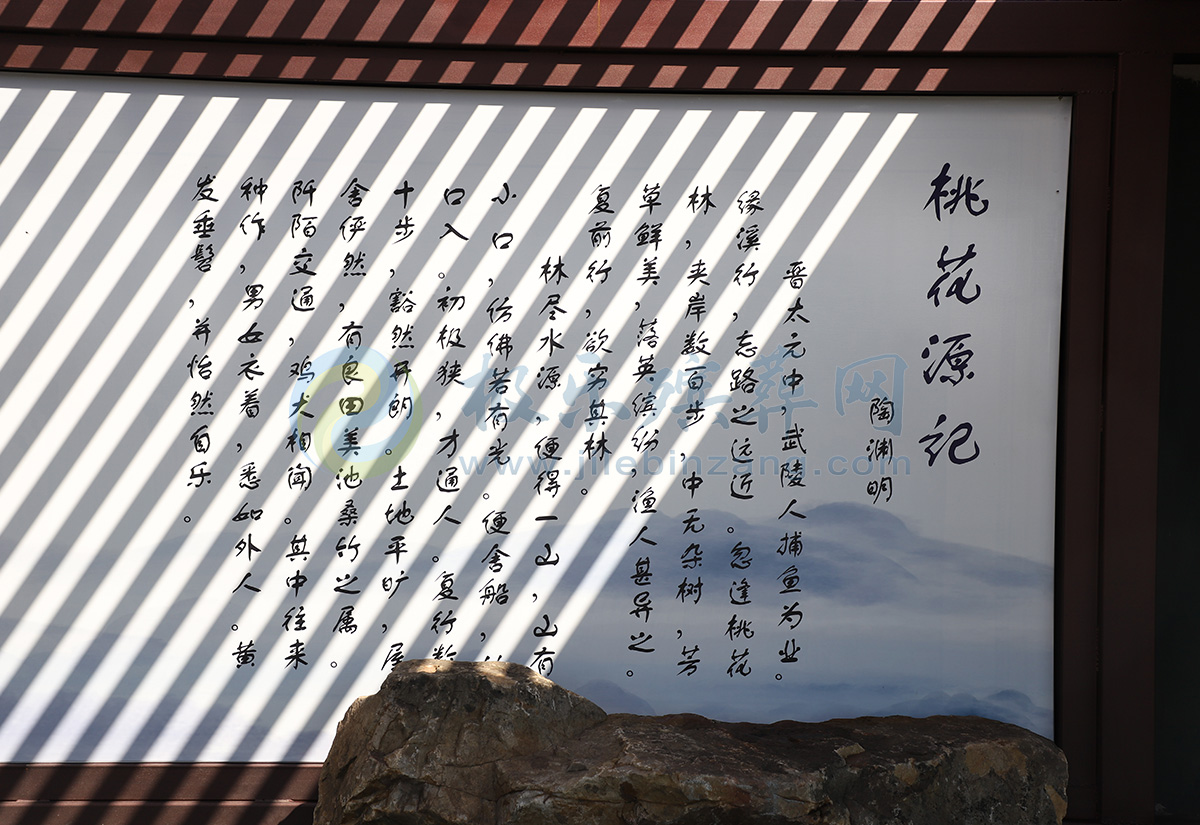 桃花源记
陶渊明
晋太元中,武陵人捕鱼为业。
缘溪行,忘路之远近。忽逢桃花
林,夹岸数百步,中无杂树,芳
草鲜美,落英缤纷,渔人甚异之。
复前行,欲穷其林。
林尽水源,便得一山,山有
小口,仿佛若有光。便舍船,
口入。初极狭,才通人。复行数
十步,豁然开朗。土地平旷,屋
舍俨然,有良田美池桑竹之属。
阡陌交通,鸡犬相闻。其中往来
种作,男女衣着,悉如外人。黄
发垂髫,并怡然自乐。
极乐殡葬网
www.jilebinzang.com